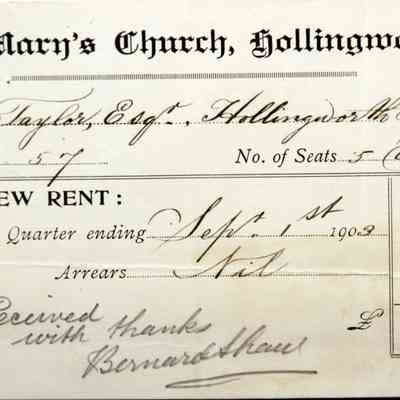 Mary's Church, Hollingwo
Taylor, Esqr., Hollingworth
57 No. of Seats 5
EW RENT:
Quarter ending Sept 1st 1903
Arrears Nil
£
eceived
with thanks
Bernard Shaw